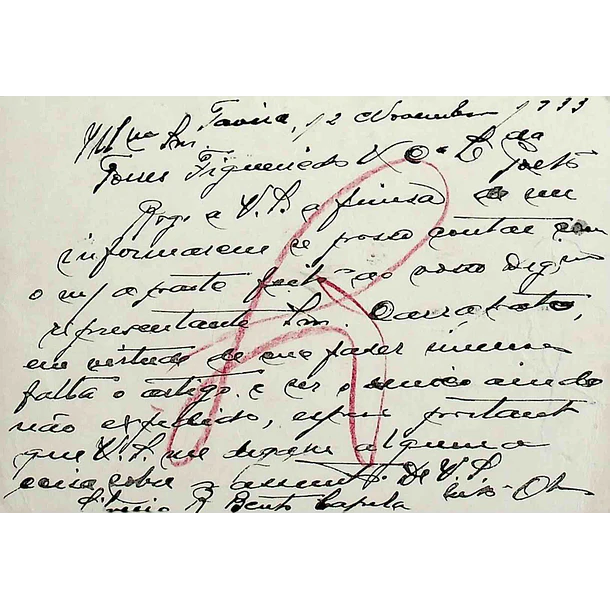 Tavira, 12 Novembro 1933
Illmo Snr.
Torres Figueiredo & Ca Lda
Porto
Rogo a V.S. a fineza de me
informarem se posso contar com
o m/ aparte feito ao vosso Digmo
representante Snr. Carrapato,
em virtude de me fazer imensa
falta o artigo e ser o unico ainda
não expedido, espero portanto
que V.S. me digam alguma
coisa sobre o assunto. De V.S.
R Bento Capela